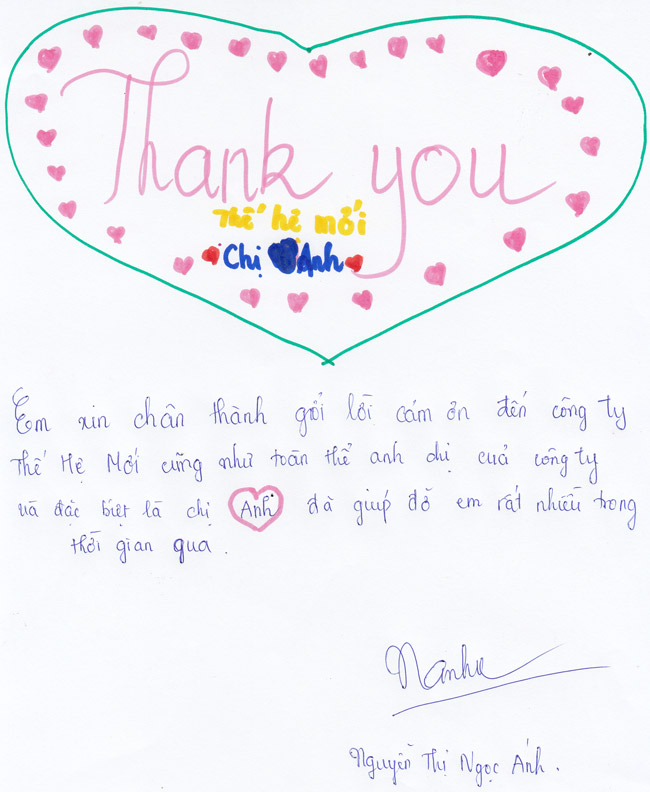 Thank you
Thế hệ mới
Chị Anh
Em xin chân thành gởi lời cám ơn đến công ty
Thế Hệ Mới cũng như toàn thể anh chị cuả công ty
và đặc biệt là chị Anh đã giúp đỡ em rất nhiều trong
thời gian qua.
Nguyễn Thị Ngọc Ánh.